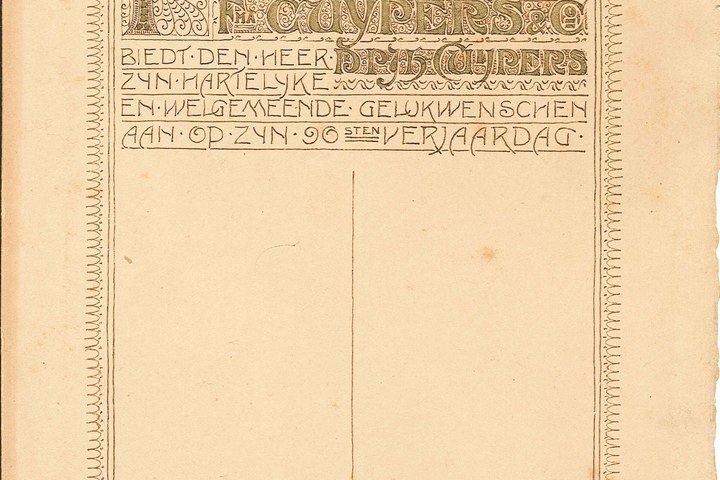 FMA CUYPERS & Co
BIEDT·DEN·HEER·Dr P.J.H. CUYPERS
ZYN·HARTELYKE
EN·WELGEMEENDE·GELUKWENSCHEN
AAN·OP·ZYN·90STEN VERJAARDAG·